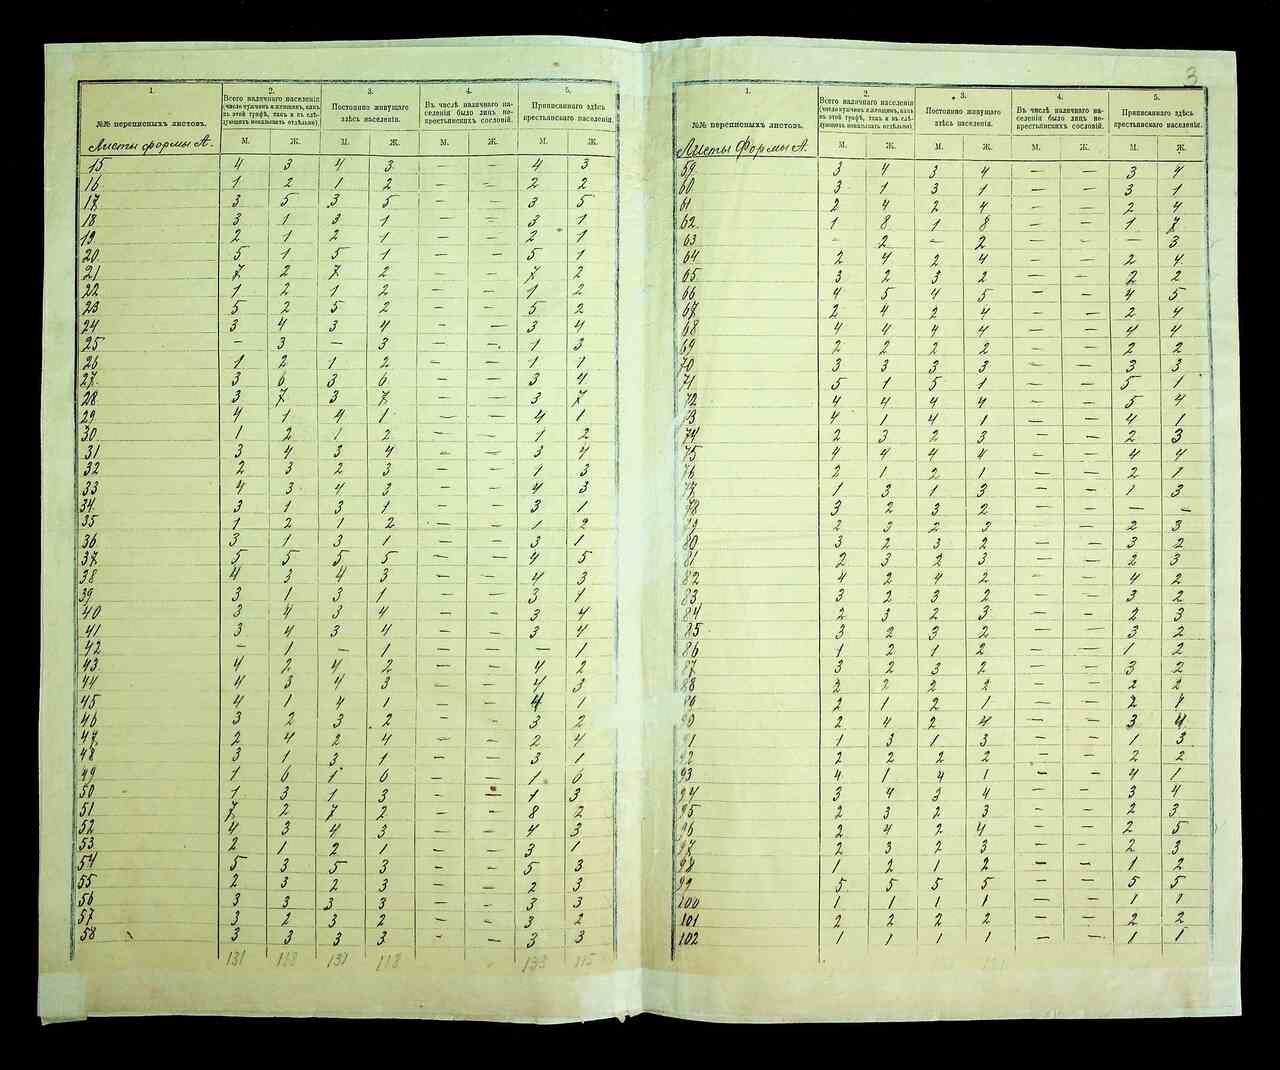 3
1.
2.
3.
4.
5.
№№ переписныхъ листовъ.
Всего наличнаго населенія
(число мужчинъ и женщинъ, какъ
въ этой графѣ, такъ и въ слѣ-
дующихъ показывать отдѣльно).
Постоянно живущаго
здѣсь населенія.
Въ числѣ наличнаго на-
селенія было лицъ не-
крестьянскихъ сословій.
Приписаннаго здѣсь
крестьянскаго населенія.
М. Ж. М. Ж. М. Ж. М. Ж.
Листы формы А.
15 4 3 4 3 4 3
16 1 2 1 2 – – 2 2
17 3 5 3 5 – – 3 5
18 3 1 3 1 – – 3 1
19 2 1 2 1 – – 2 1
20 5 1 5 1 – – 5 1
21 7 2 7 2 – – 7 2
22 1 2 1 2 – – 1 2
23 5 2 5 2 – – 5 2
24 3 4 3 4 – – 3 4
25 – 3 – 3 – – 1 3
26 1 2 1 2 – – 1 1
27 3 6 3 6 – – 3 4
28 3 7 3 7 – – 3 7
29 4 1 4 1 – – 4 1
30 1 2 1 2 – – 1 2
31 3 4 3 4 – – 3 4
32 2 3 2 3 – – 1 3
33 4 3 4 3 – – 4 3
34 3 1 3 1 – – 3 1
35 1 2 1 2 – – 1 2
36 3 1 3 1 – – 3 1
37 5 5 5 5 – – 4 5
38 4 3 4 3 – – 4 3
39 3 1 3 1 – – 3 1
40 3 4 3 4 – – 3 4
41 3 4 3 4 – – 3 4
42 – 1 – 1 – – – 1
43 4 2 4 2 – – 4 2
44 4 3 4 3 – – 4 3
45 4 1 4 1 – – 4 1
46 3 2 3 2 – – 3 2
47 2 4 2 4 – – 2 4
48 3 1 3 1 – – 3 1
49 1 6 1 6 – – 1 6
50 1 3 1 3 – – 1 3
51 7 2 7 2 – – 8 2
52 4 3 4 3 – – 4 3
53 2 1 2 1 – – 3 1
54 5 3 5 3 – – 5 3
55 2 3 2 3 – – 2 3
56 3 3 3 3 – – 3 3
57 3 2 3 2 – – 3 2
58 3 3 3 3 – – 3 3
131 118 131 118 133 115
1.
2.
3.
4.
5.
№№ переписныхъ листовъ.
Всего наличнаго населенія
(число мужчинъ и женщинъ, какъ
въ этой графѣ, такъ и въ слѣ-
дующихъ показывать отдѣльно).
Постоянно живущаго
здѣсь населенія.
Въ числѣ наличнаго на-
селенія было лицъ не-
крестьянскихъ сословій.
Приписаннаго здѣсь
крестьянскаго населенія.
М. Ж. М. Ж. М. Ж. М. Ж.
Листы Формы А.
59 3 4 3 4 – – 3 4
60 3 1 3 1 – – 3 1
61 2 4 2 4 – – 2 4
62 1 8 1 8 – – 1 7
63 – 2 – 2 – – – 3
64 2 4 2 4 – – 2 4
65 3 2 3 2 – – 2 2
66 4 5 4 5 – – 4 5
67 2 4 2 4 – – 2 4
68 4 4 4 4 – – 4 4
69 2 2 2 2 – – 2 2
70 3 3 3 3 – – 3 3
71 5 1 5 1 – – 5 1
72 4 4 4 4 – – 5 4
73 4 1 4 1 – – 4 1
74 2 3 2 3 – – 2 3
75 4 4 4 4 – – 4 4
76 2 1 2 1 – – 2 1
77 1 3 1 3 – – 1 3
78 3 2 3 2 – – – –
79 2 3 2 3 – – 2 3
80 3 2 3 2 – – 3 2
81 2 3 2 3 – – 2 3
82 4 2 4 2 – – 4 2
83 3 2 3 2 – – 3 2
84 2 3 2 3 – – 2 3
85 3 2 3 2 – – 3 2
86 1 2 1 2 – – 1 2
87 3 2 3 2 – – 3 2
88 2 2 2 2 – – 2 2
89 2 1 2 1 – – 2 1
90 2 4 2 4 – – 3 4
91 1 3 1 3 – – 1 3
92 2 2 2 2 – – 2 2
93 4 1 4 1 – – 4 1
94 3 4 3 4 – – 3 4
95 2 3 2 3 – – 2 3
96 2 4 2 4 – – 2 5
97 2 3 2 3 – – 2 3
98 1 2 1 2 – – 1 2
99 5 5 5 5 – – 5 5
100 1 1 1 1 – – 1 1
101 2 2 2 2 – – 2 2
102 1 1 1 1 – – 1 1